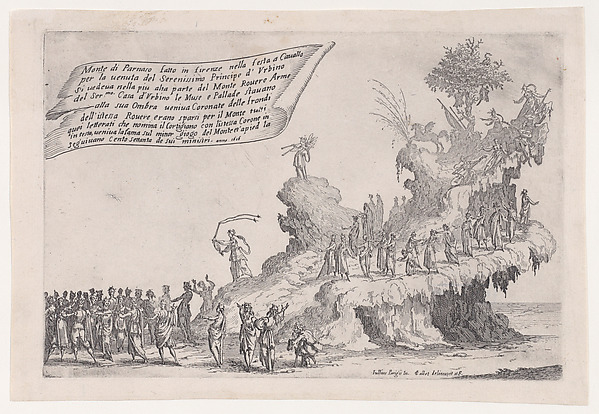 Monte di Parnaso fatto in firenze nella festa a Cauallo
per la uenuta del Serenissimo Principe d' Vrbino
Si uedeua nella piu alta parte del Monte Rouere Arme
del Ser.mo Casa d'Vrbino le Muse e Pallade stauano
alla sua Ombra ueniua Coronate delle frondi
dell'istessa Rouere erano sparsi per il Monte tutti
quei letterati che nomina il Cortigiano con l'istessa Corone in
in testa, ueniua la fama sul minor giogo del Monte et apied la
seguiuano Cento Settanta de sui ministri.
Iullius Parigii In. Callot delineauit et F.